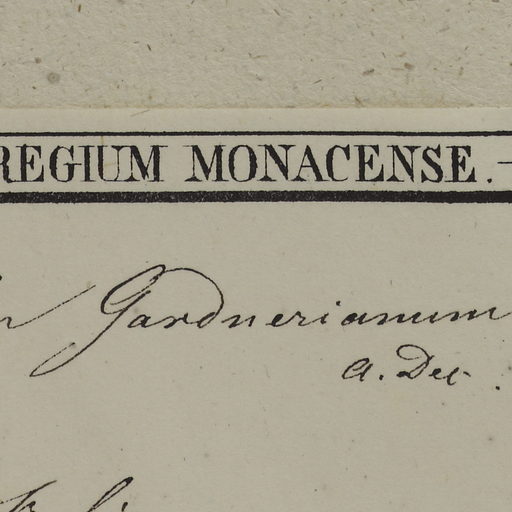 REGIUM MONACENSE. —
Gardnerianum
a. Dec.